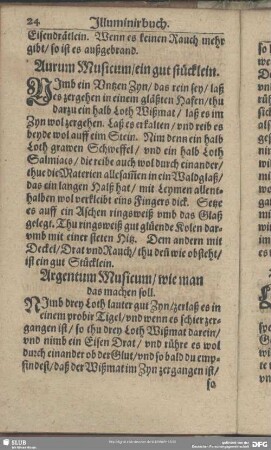 24 Illuminirbuch.
Eisendrätlein. Wenn es keinen Rauch mehr
gibt/ so ist es außgebrand.
Aurum Musicum/ ein gut stücklein.
NImb ein Vntzen Zyn/ das rein sey/ laß
es zergehen in einem gläßten Hafen/ thu
darzu ein halb Loth Wißmat/ laß es im
Zyn wol zergehen. Laß es erkalten/ vnd reib es
beyde wol auff eim Stein. Nim denn ein halb
Loth grawen Schweffel/ vnd ein halb Loth
Salmiacs/ die reibe auch wol durch einander/
thue die Materien allesam̃en in ein Waldglaß/
das ein langen Halß hat/ mit Leymen allent-
halben wol verkleibt eins Fingers dick. Setze
es auff ein Aschen ringsweiß vmb das Glaß
gelegt. Thu ringsweiß gut glüende Kolen dar-
vmb mit einer steten Hitz. Dem andern mit
Deckel/ Drat vnd Rauch/ thu deñ wie obsteht/
ist ein gut Stücklein.
Argentum Musicum/ wie man
das machen soll.
NImb drey Loth lauter gut Zyn/ zerlaß es in
einem probir Tigel/ vnd wenn es schier zer-
gangen ist/ so thu drey Loth Wißmat darein/
vnd nimb ein Eisen Drat/ vnd rühre es wol
durch einander ob der Glut/ vnd so bald du emp-
findest/ daß der Wißmat im Zyn zergangen ist/
so
SLUB
DFG